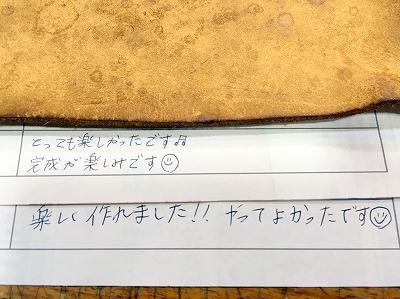 とっても楽しかったです♫
完成が楽しみです☺
楽しく作れました!! やってよかったです☺